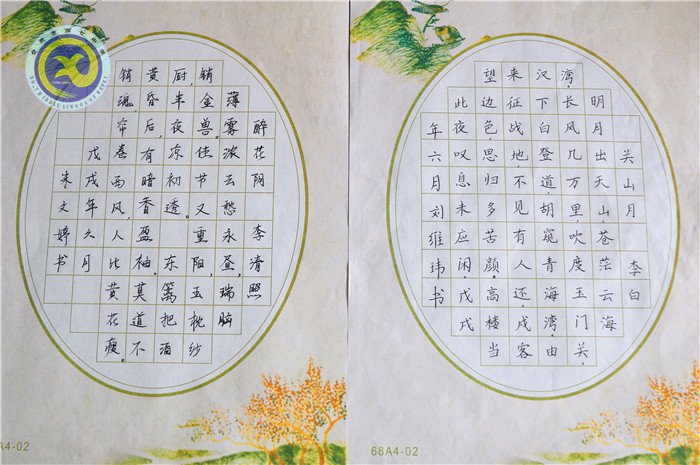 醉花阴 李清照
薄雾浓云愁永昼,瑞脑
销金兽。佳节又重阳,玉枕纱
厨,半夜凉初透。东篱把酒
黄昏后,有暗香盈袖。莫道不
销魂帘卷西风,人比黄花瘦。
戊戌年久月
朱文婷书
关山月 李白
明月出天山,苍茫云海
湾。长风几万里,吹度玉门关。
汉下白登道,胡窥青海湾。由
来征战地不见有人还,戍客
望边色思归多苦颜。高楼当
此夜叹息未应闲。戊戌
年六月刘维玮书
68A4-02
A4-02